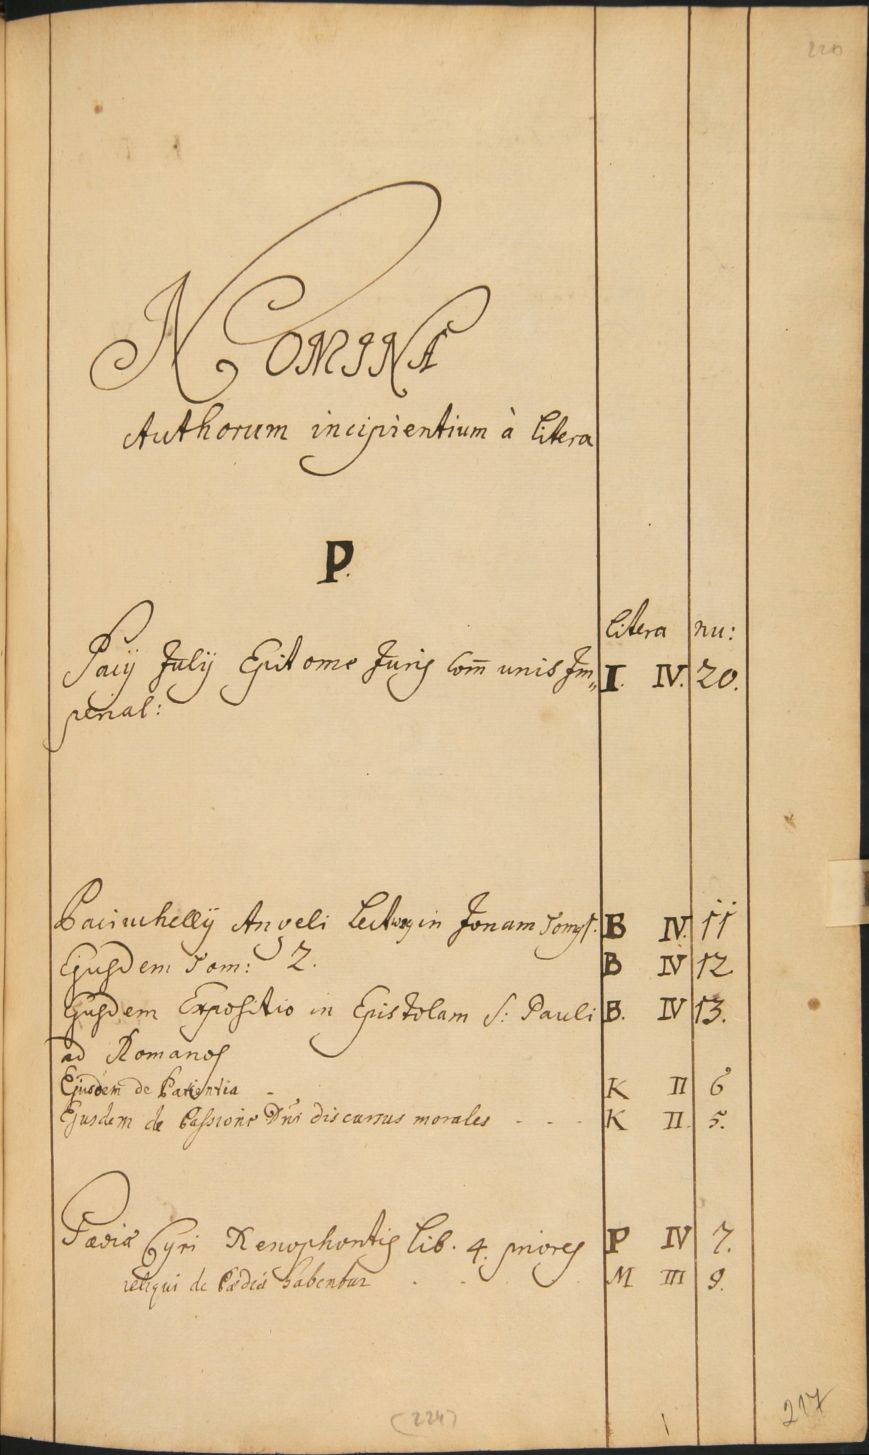 220
NOMINA
Authorum incipientium à litera
P.
litera nu:
Pacij Julij Epitome Juris Com̄unis Im„ I. IV. 20.
perial:
Paciuchellij Angeli Lect: in Jonam Tomus 1. B IV. 11
Ejusdem Tom: 2. B IV 12
Ejusdem Expositio in Epistolam S: Pauli B. IV 13.
ad Romanos
Ejusdem de Patientia - K II 6
Ejusdem de Passione Dni discursus morales - - - K II. 5.
Pædia Cyri Xenophontis lib. 4. priores P IV 7.
reliqui de Pædia habentur . . . M III 9.
(224)
217